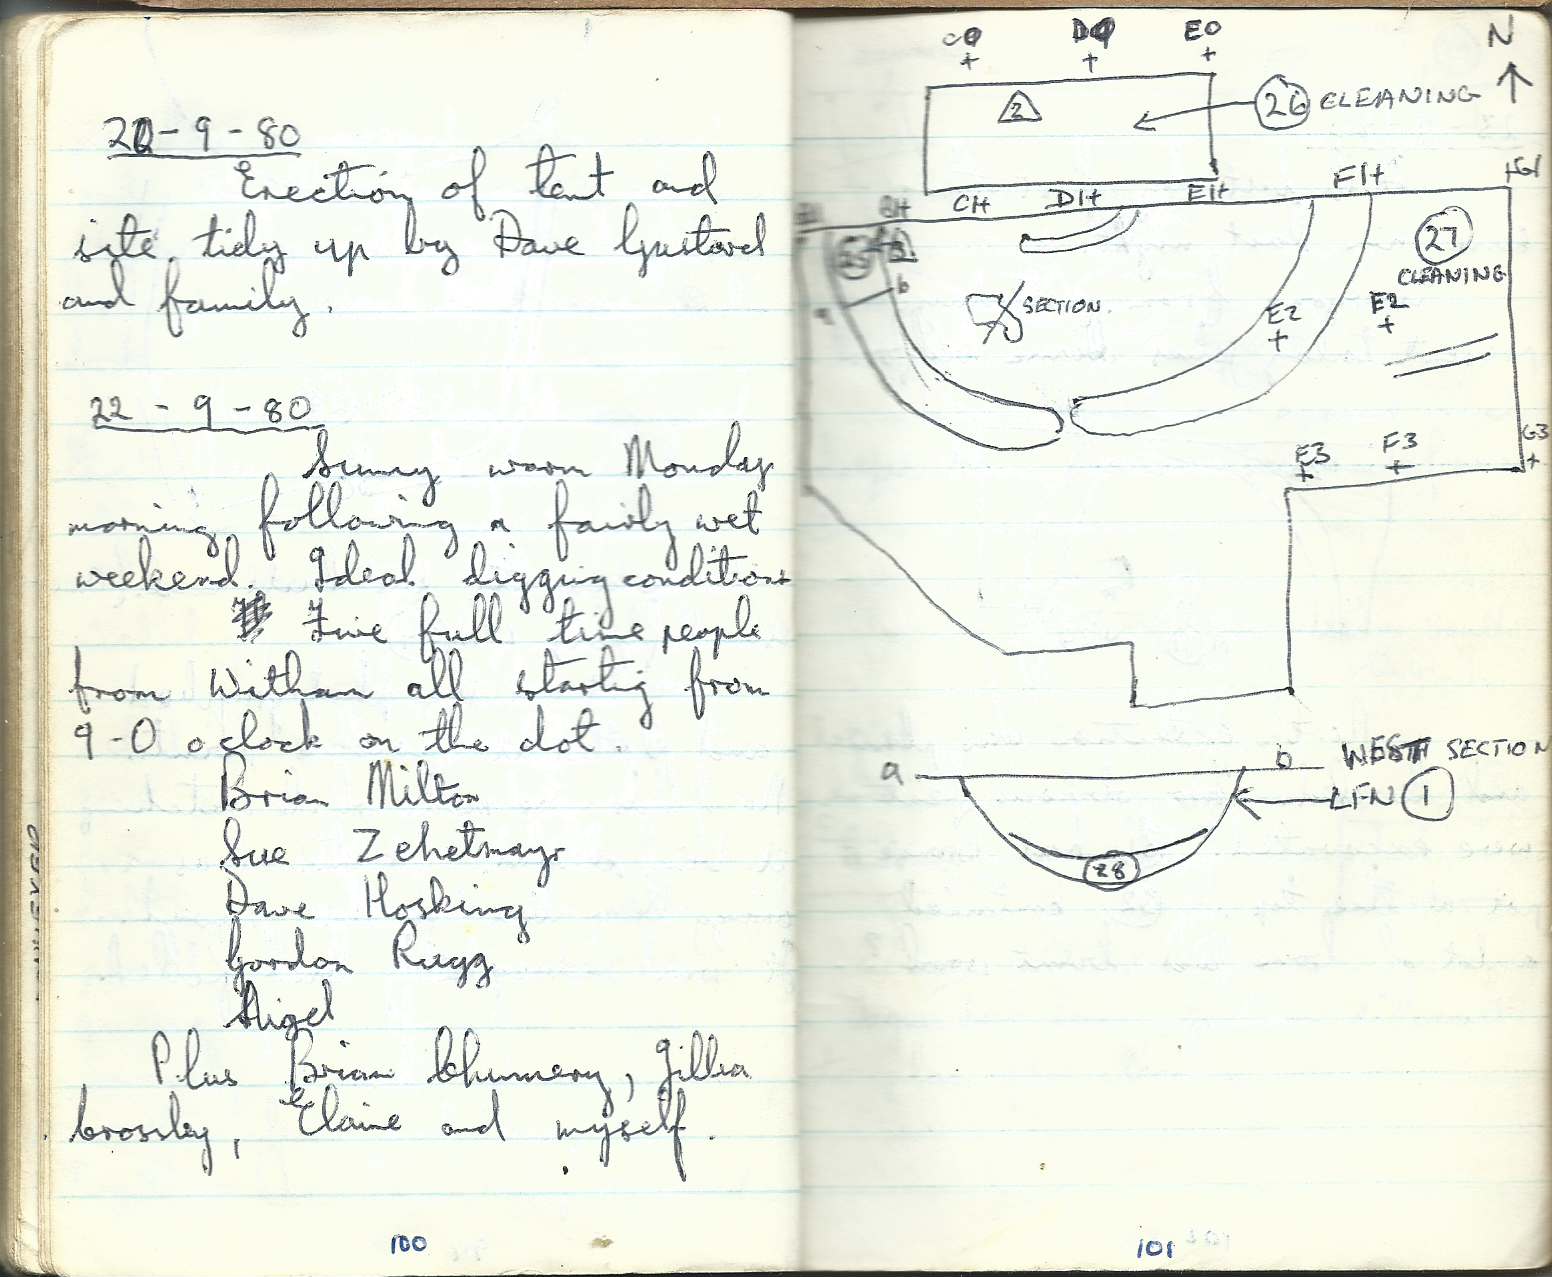 20-9-80
Erection of tent and
site tidy up by Dave Gustard
and family.
22-9-80
Sunny warm Monday
morning following a fairly wet
weekend. Ideal digging conditions
Five full time people
from Witham all starting from
9-0 o clock on the dot.
Brian Milton
Sue Zehetmayr
Dave Hosking
Gordon Rugg
Nigel
Plus Brian
Crossley, Elaine and myself.
100
D0 E0 N
2 26 CLEANING
C1+ D1+ E1+ F1+ +G1
B1+
25 27
CLEANING
a b SECTION.
E2 E2
E3 F3 G3
a b WEST SECTION
LFN 1
28
101